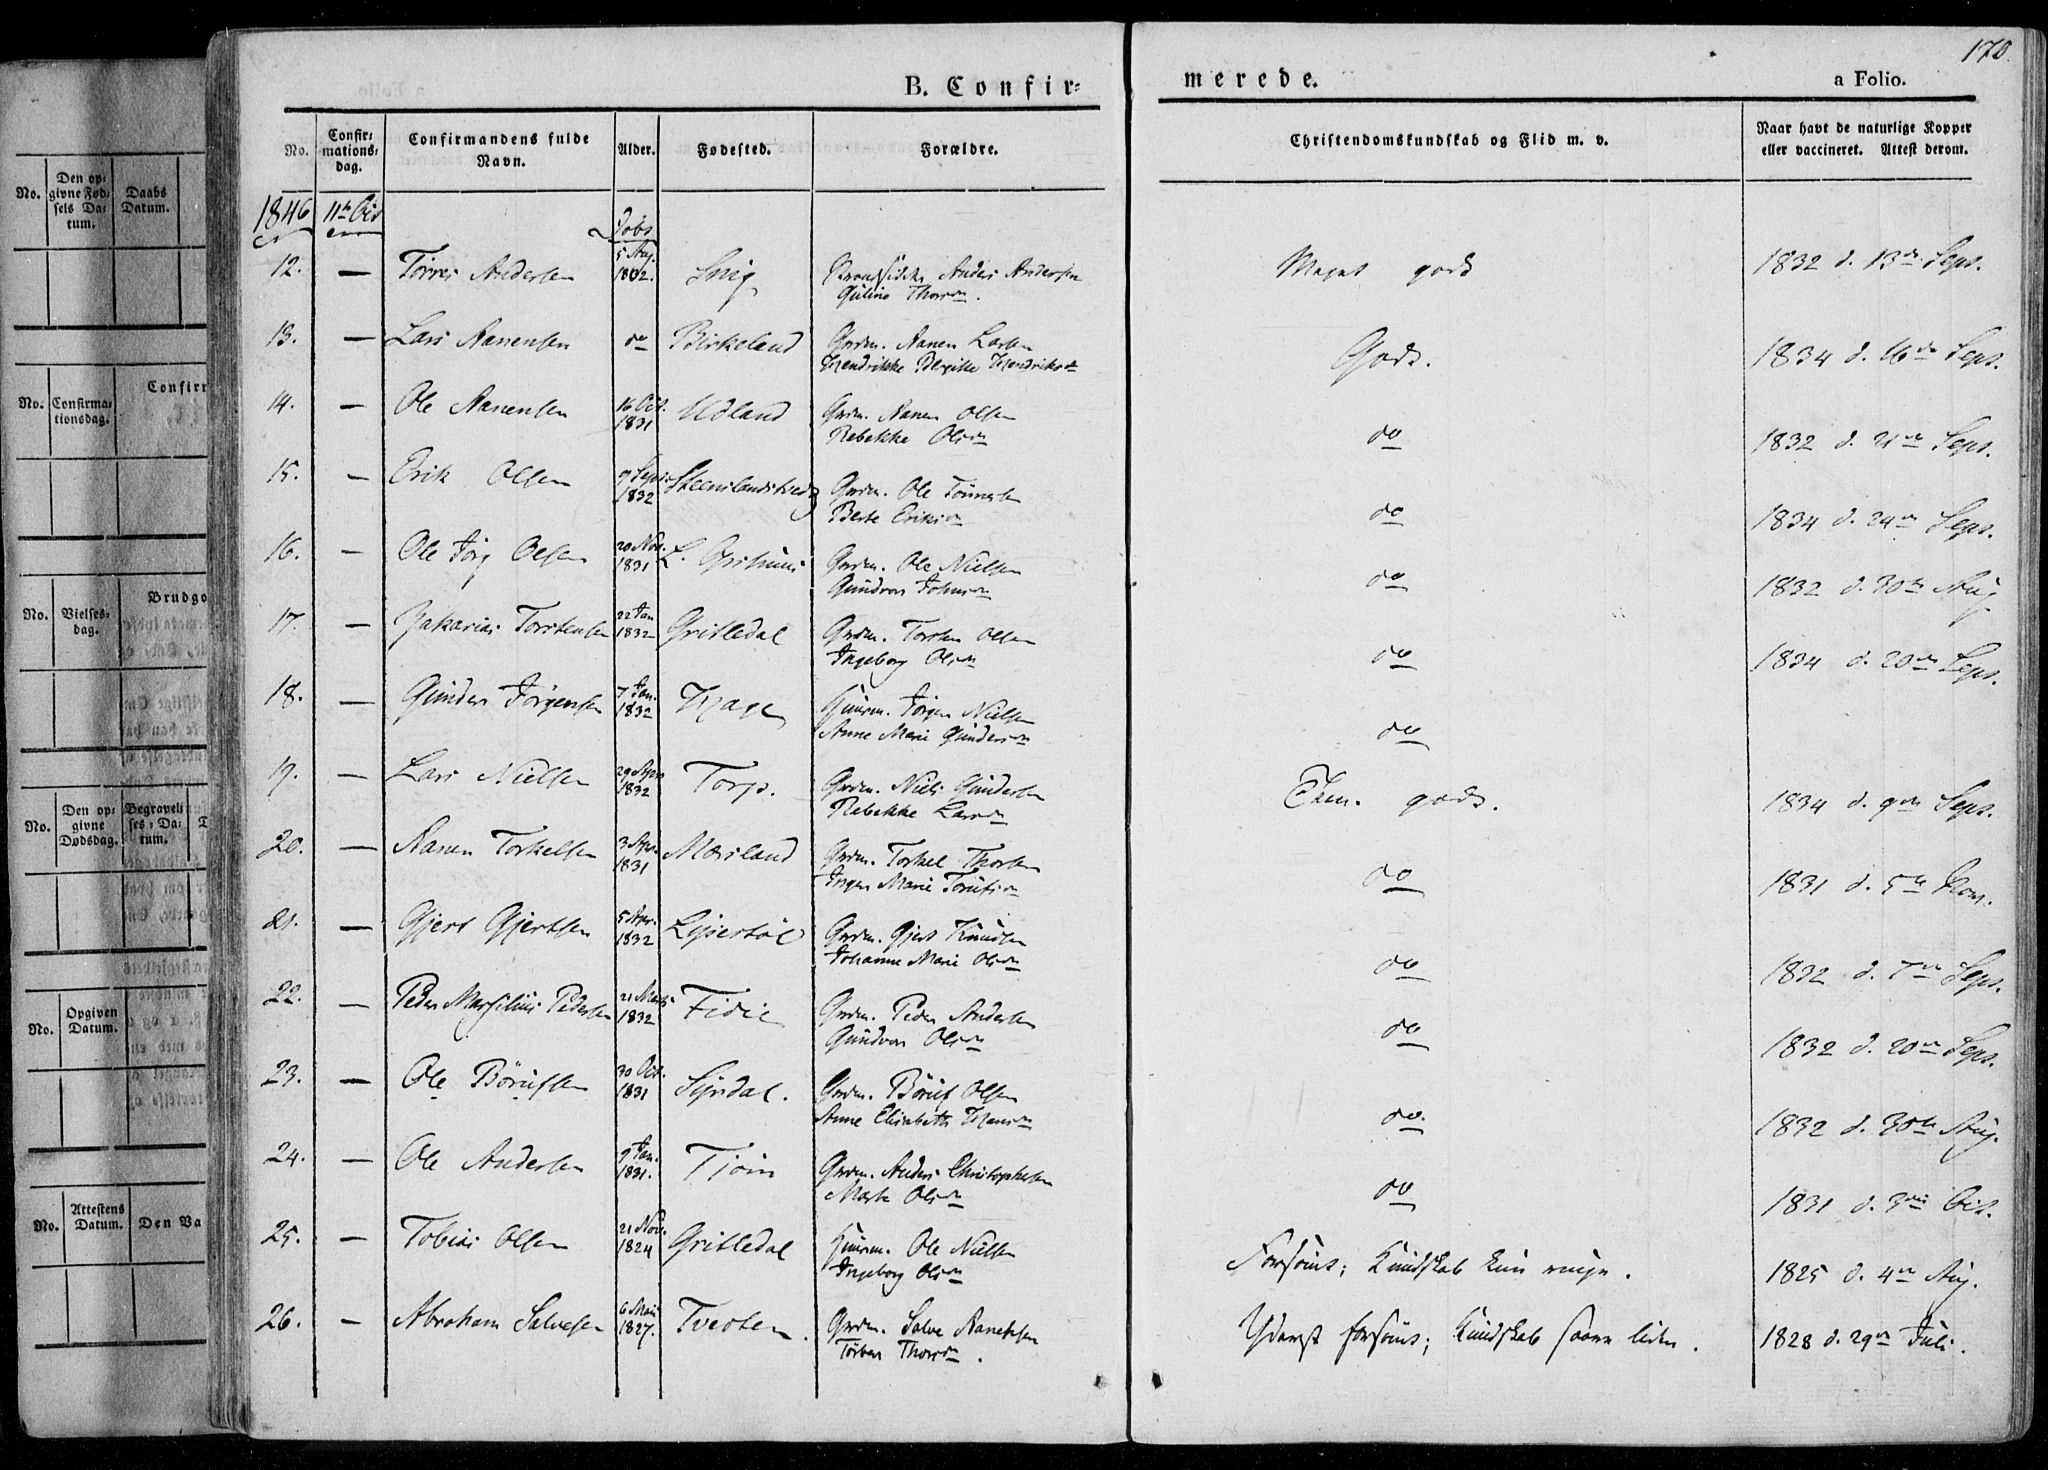 170.
B. Confir=
merede.
a Folio.
No.
Confir=
mations=
dag.
Confirmandens fulde
Navn.
Alder.
Fødested.
Forældre.
Christendomskundskab og Flid m. v.
Naar havt de naturlige Kopper
eller vaccineret. Attest derom.
1846 11te Oct
Døbt
12. — Tørres Andersen 5 Aug. 1832. Snig Anders Andersen
Guline Thorsdn.
Meget godt
1832 d. 13de Sept.
13. — Lars Aanensen do Birkeland Grdm. Aanen Larsen
Hendrikke Bergitte Hendriksdn
Godt.
1834 d. 16de Sept.
14. — Ole Aanensen 16 Oct. 1831 Udland Grdm. Aanen Olsen
Rebekke Olsdn
do
1832 d. 21de Sept.
15. — Erik Olsen 9 Sept 1832 Steenslandskved Grdm. Ole Tønnesen
Berte Eriksdn
do
1834 d. 24de Sept.
16. — Ole Jørg Olsen 20 Nov. 1831 L. Grisemi Grdm. Ole Nielsen
Gundvor Johnsdn
do
1832 d. 30te Aug
17. — Zakarias Torstensen 22 Jan 1832 Gritledal Grdm. Torsten Olsen
Ingeborg Olsdn
do
1834 d. 20de Sept.
18. — Gunder Jørgensen 7 Jan. 1832 Hage Huusm. Jørgen Nielsen
Anne Marie Gundersdn
do
19. — Lars Nielsen 29 Apr 1832 Torp. Grdm. Niels Gundersen
Rebekke Larsdn
Tem. godt.
1834 d. 9de Sept.
20. — Aanen Torkelsen 3 Apr. 1831 Mæsland Grdm. Torkel Thorsen
Inger Marie
do
1831 d. 5te
21. — Gjert Gjertsen 5 Apr. 1832 Lipestøl Grdm. Gjert Knudsen
Johanne Marie Olsdn
do
1832 d. 7de Sept.
22. — Peder Marsilius Pedersen 21 Marts 1832 Fidie Grdm. Peder Andersen
Gundvor Olsdn
do
1832 d. 20de Sept.
23. — Ole Børufsen 30 Oct. 1831 Syrdal. Grdm. Børuf Olsen
Anne Elisabeth Hansdn
do.
1832 d. 30te Aug.
24. — Ole Andersen 9 Jan. 1831. Tjøm Grdm. Anders Christophersen
Marte Olsdn
do
1831 d. 3die Oct.
25. — Tobias Olsen 21 Nov. 1824 Gritledal Huusm. Ole Nielsen
Ingeborg Olsdn
Forsømt; Kundskab kun ringe.
1825 d. 4de Aug.
26. — Abraham Salvesen 6 Mai 1827. Tveten. Grdm. Salve Aanensen
Torbor Thorsdn.
Yderst forsømt; Kundskab saare liden.
1828 d. 29de Juli.
No.
Den op=
givne Fød=
sels Da=
tum.
Daabs
Datum.
Confirm
No.
Confirma=
tionsdag.
Brudgo
No.
Vielses=
dag.
No.
Den op=
givne
Dødsdag.
Begravel=
ses=Da=
tum.
No.
Opgiven
Datum.
No.
Attestens
Datum.
Den Va